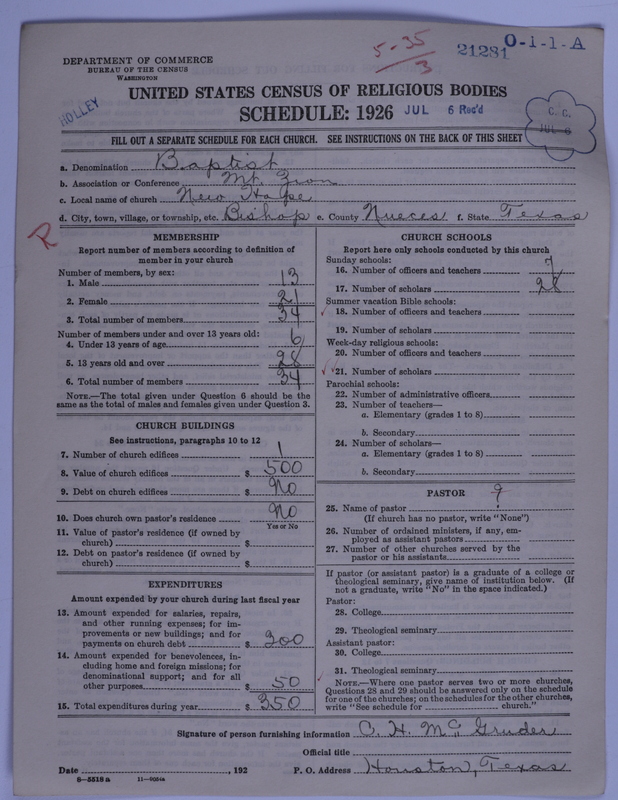 5-35
3
21281
O-1-1-A
DEPARTMENT OF COMMERCE
BUREAU OF THE CENSUS
WASHINGTON
HOLLEY
UNITED STATES CENSUS OF RELIGIOUS BODIES
SCHEDULE: 1926
JUL 6 Rec'd
C. C.
JUL 6
FILL OUT A SEPARATE SCHEDULE FOR EACH CHURCH. SEE INSTRUCTIONS ON THE BACK OF THIS SHEET
a. Denomination Baptist
b. Association or Conference Mt. Zion
c. Local name of church New Hope
d. City, town, village, or township, etc. Bishop e. County Nueces f. State Texas
R
MEMBERSHIP
Report number of members according to definition of
member in your church
Number of members, by sex:
1. Male 13
2. Female 21
3. Total number of members 34
Number of members under and over 13 years old:
4. Under 13 years of age 6
5. 13 years old and over 28
6. Total number of members 34
NOTE.—The total given under Question 6 should be the
same as the total of males and females given under Question 3.
CHURCH BUILDINGS
See instructions, paragraphs 10 to 12
7. Number of church edifices 1
8. Value of church edifices $ 500
9. Debt on church edifices $ No
10. Does church own pastor's residence No
Yes or No
11. Value of pastor's residence (if owned by
church) $
12. Debt on pastor's residence (if owned by
church) $
EXPENDITURES
Amount expended by your church during last fiscal year
13. Amount expended for salaries, repairs,
and other running expenses; for im-
provements or new buildings; and for
payments on church debt $ 300
14. Amount expended for benevolences, in-
cluding home and foreign missions; for
denominational support; and for all
other purposes $ 50
15. Total expenditures during year $ 350
CHURCH SCHOOLS
Report here only schools conducted by this church
Sunday schools:
16. Number of officers and teachers 7
17. Number of scholars 28
Summer vacation Bible schools:
18. Number of officers and teachers
19. Number of scholars
Week-day religious schools:
20. Number of officers and teachers
21. Number of scholars
Parochial schools:
22. Number of administrative officers
23. Number of teachers—
a. Elementary (grades 1 to 8)
b. Secondary
24. Number of scholars—
a. Elementary (grades 1 to 8)
b. Secondary
PASTOR
?
25. Name of pastor
(If church has no pastor, write "None")
26. Number of ordained ministers, if any, em-
ployed as assistant pastors
27. Number of other churches served by the
pastor or his assistants
If pastor (or assistant pastor) is a graduate of a college or
theological seminary, give name of institution below. (If
not a graduate, write "No" in the space indicated.)
Pastor:
28. College
29. Theological seminary
Assistant pastor:
30. College
31. Theological seminary
NOTE.—Where one pastor serves two or more churches,
Questions 28 and 29 should be answered only on the schedule
for one of the churches; on the schedules for the other churches,
write "See schedule for church."
Signature of person furnishing information C. H. McGruder
Official title
Date , 192 P. O. Address Houston, Texas
8—5518 a 11—9054a